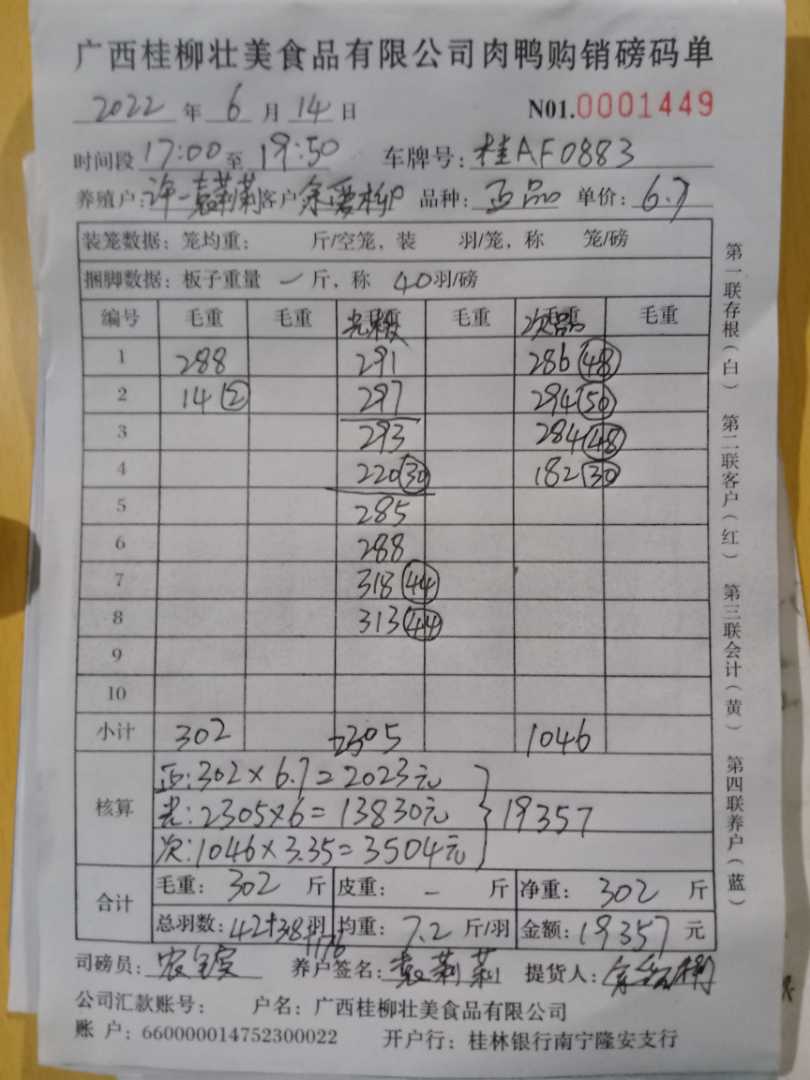 广西桂柳壮美食品有限公司肉鸭购销磅码单
2022 年 6 月 14 日 N01.0001449
时间段 17:00 至 19:50 车牌号: 桂AF0883
养殖户: 许一袁莉莉 客户 余爱柳 品种: 正品 单价: 6.7
装笼数据: 笼均重: 斤/空笼, 装 羽/笼, 称 笼/磅
捆脚数据: 板子重量 一 斤, 称 40羽/磅
编号 毛重 毛重 毛重 次品 毛重
1 288 291 286 (48)
2 14 (2) 297 294 (50)
3 293 284 (48)
4 220 (30) 182 (30)
5 285
6 288
7 318 (44)
8 313 (44)
9
10
小计 302 2305 1046
核算
正:302×6.7=2023元
光:2305×6=13830元 } 19357
次:1046×3.35=3504元
合计
毛重: 302 斤 皮重: - 斤 净重: 302 斤
总羽数: 42+38+176 羽 均重: 7.2 斤/羽 金额: 19357 元
司磅员: 养户签名: 袁莉莉 提货人:
公司汇款账号: 户名: 广西桂柳壮美食品有限公司
账 户: 660000014752300022 开户行: 桂林银行南宁隆安支行
第一联存根(白) 第二联客户(红) 第三联会计(黄) 第四联养户(蓝)